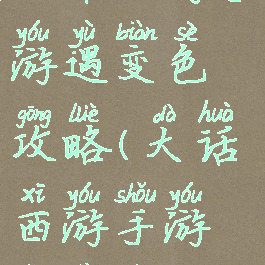 yóu yù biàn sè
游遇变色
gōng lüè dà huà
攻略(大话
xī yóu shǒu yóu
西游手游